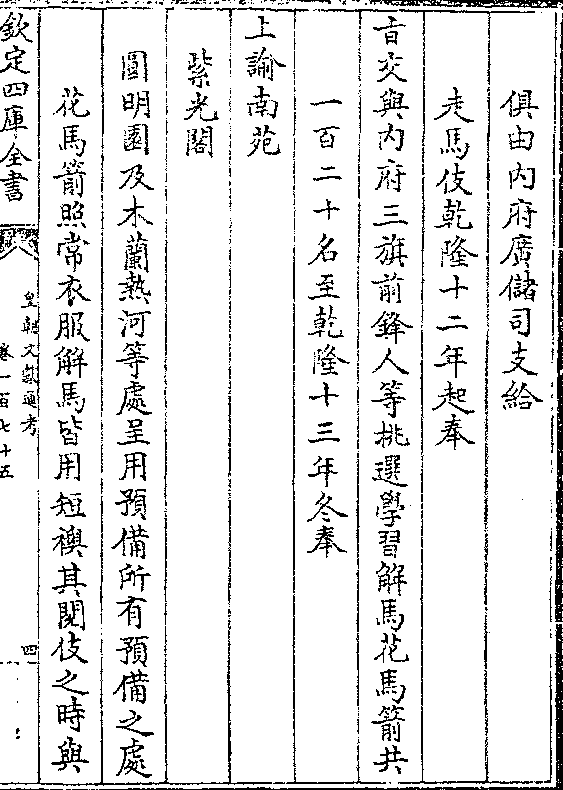 俱由内府廣儲司支給
走馬伎乾隆十二年起奉
㫖交與内府三旗前鋒人等挑選學習解馬花馬箭共
一百二十名至乾隆十三年冬奉
上諭南苑
紫光閣
圓明園及木蘭熱河等處呈用預備所有預備之處
花馬箭照常衣服解馬皆用短襖其閱伎之時與
欽定四庫全書
皇朝文獻通考
卷一百七十五
四